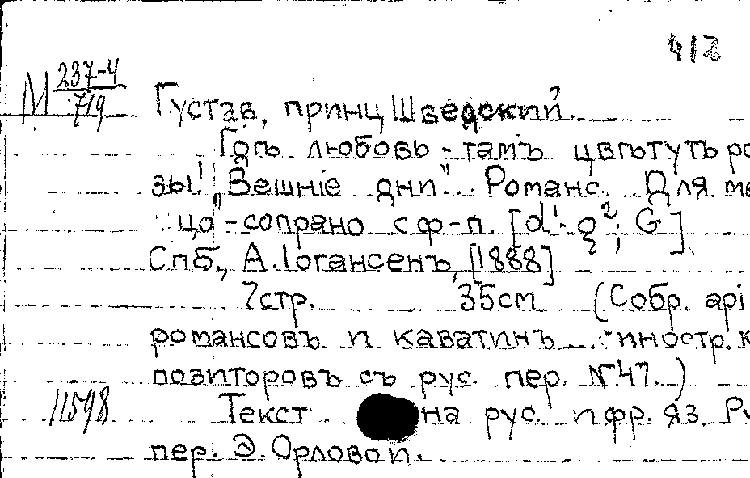 412
М 237-4/719
Густав, принц Шведский.
"Гдѣ любовь - тамъ цвѣтутъ ро
зы". "Вешніе дни". Романс. Для ме
ццо-сопрано с ф-п. [d¹-g²; G]
Спб., А. Іогансенъ, [1888]
7стр. 35см (Собр. арі
романсовъ и каватинъ иностр. к
позиторовъ съ рус. пер. №47.)
11598 Текст на рус. и фр. яз. Ру
пер. Э. Орловой.